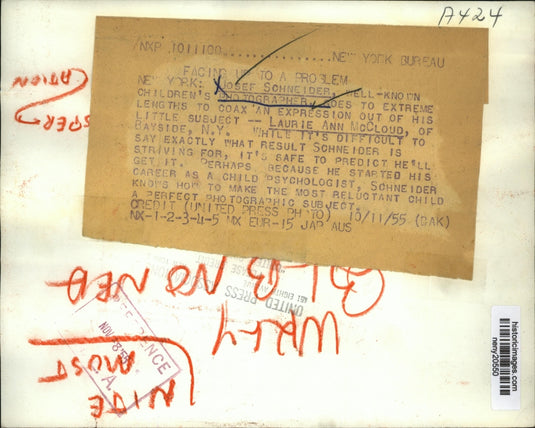 A424
/NXP 1011100................NEW YORK BUREAU
FACING UP TO A PROBLEM
NEW YORK: JOSEF SCHNEIDER, WELL-KNOWN
CHILDREN'S PHOTOGRAPHER, GOES TO EXTREME
LENGTHS TO COAX AN EXPRESSION OUT OF HIS
LITTLE SUBJECT -- LAURIE ANN MCCLOUD, OF
BAYSIDE, N.Y. WHILE IT'S DIFFICULT TO
SAY EXACTLY WHAT RESULT SCHNEIDER IS
STRIVING FOR, IT'S SAFE TO PREDICT HE'LL
GET IT. PERHAPS BECAUSE HE STARTED HIS
CAREER AS A CHILD PSYCHOLOGIST, SCHNEIDER
KNOWS HOW TO MAKE THE MOST RELUCTANT CHILD
A PERFECT PHOTOGRAPHIC SUBJECT.
CREDIT (UNITED PRESS PHOTO) 10/11/55 (DAK)
NX-1-2-3-4-5 MX EUR-15 JAP AUS
UNITED PRESS
461 EIGHTH AVE
NO NED
WRLY
NITE
MOST
NOV 8 '55
A.
historicimages.com
neny20550